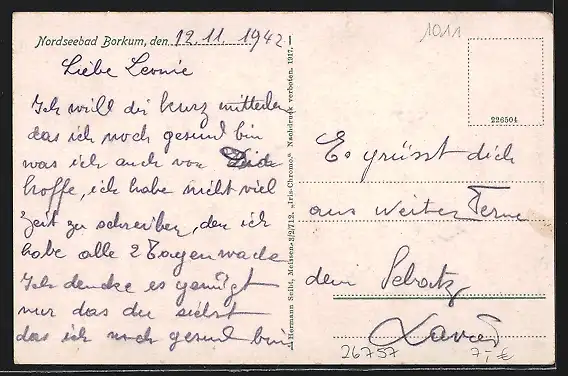 Nordseebad Borkum, den 12.11.1942
Liebe Leonie
Ich will dir kurz mitteilen
das ich noch gesund bin
was ich auch von Dich
hoffe, ich habe nicht viel
Zeit zu schreiben, den ich
habe alle 2 Tagen wache
Ich dencke es genügt
nur das du siehst
das ich noch gesund bin
Hermann Seibt, Meissen. 3/2/712. „Iris-Chromo.“ Nachdruck verboten. 1917.
1011
226504
Es grüsst dich
aus weiter Ferne
dein Schatz
Xaver
26757 7,-€